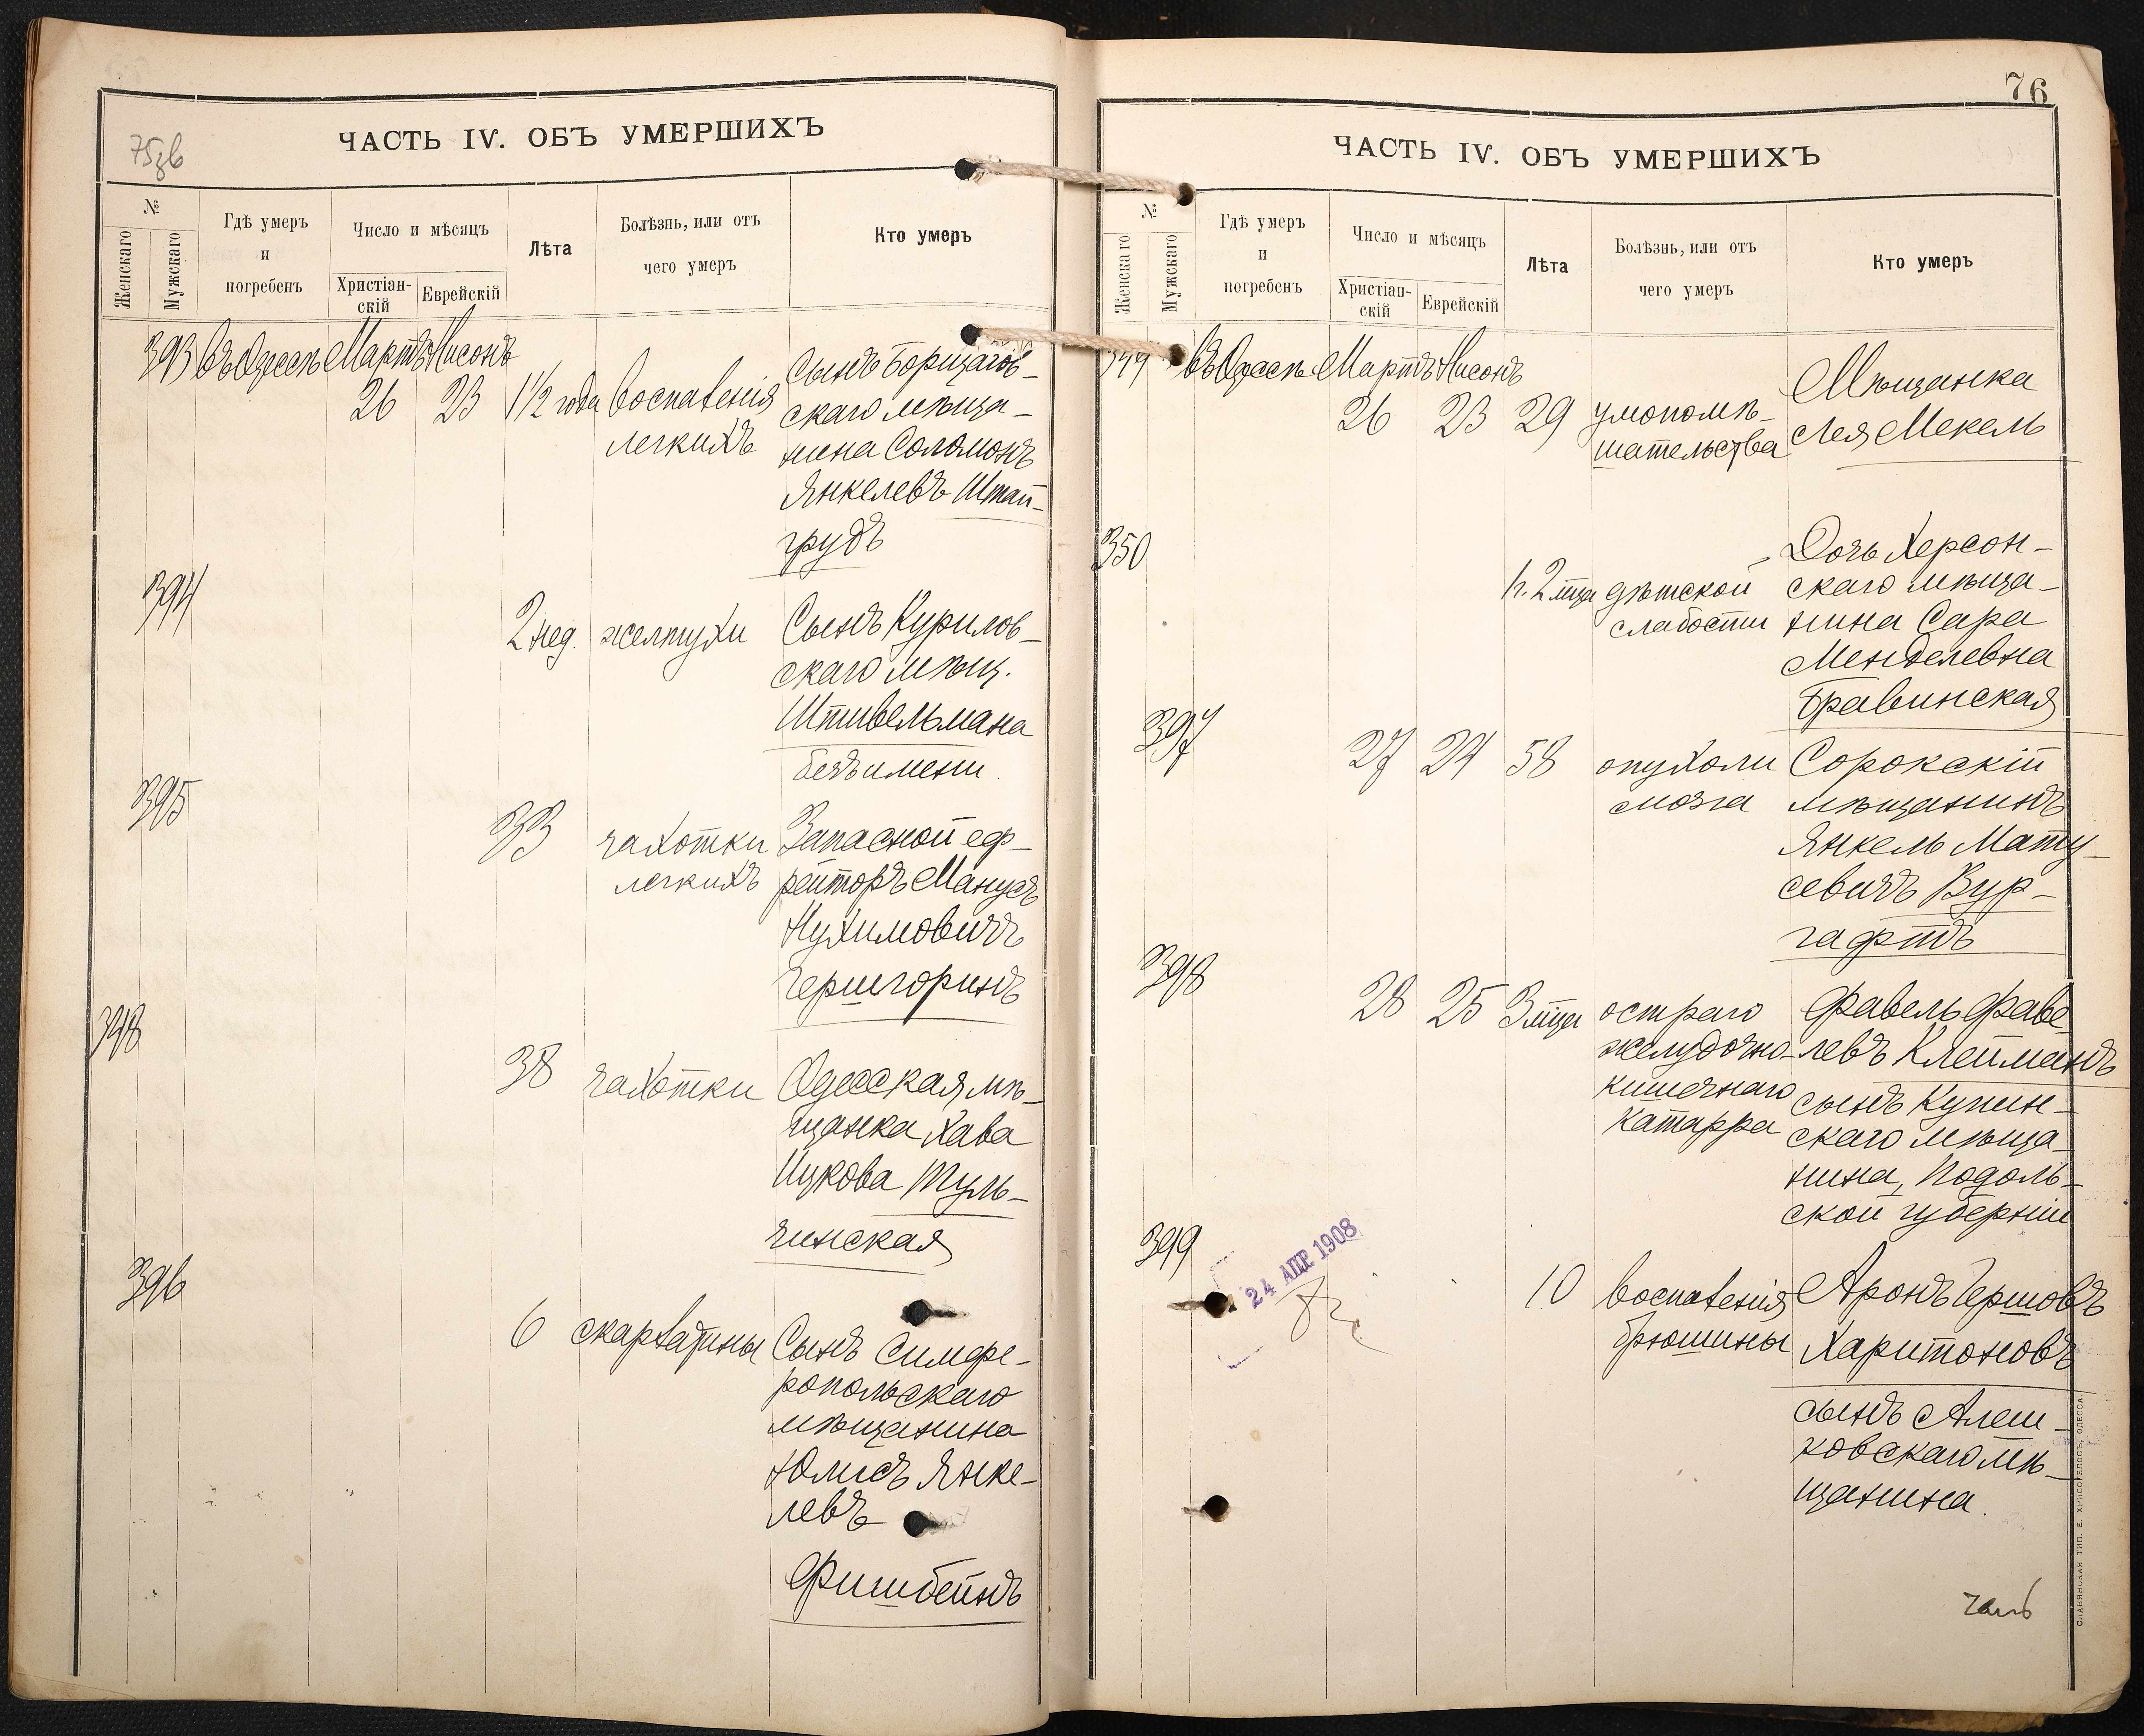 ЧАСТЬ IV. ОБЪ УМЕРШИХЪ
№
Женскаго
Мужскаго
Гдѣ умеръ
и
погребенъ
Число и мѣсяцъ
Христіан-
скій
Еврейскій
Лѣта
Болѣзнь, или отъ
чего умеръ
Кто умеръ
393 въ Одессѣ Мартъ Нисонъ
26 23 1 1/2 года воспаленія
легкихъ
Сынъ Борщагов-
скаго мѣща-
нина Соломонъ
Янкелевъ Штай-
грудъ
394
2 нед. желтухи
Сынъ Курилов-
скаго мѣщ.
Штивельмана
безъ имени.
395
33 чахотки
легкихъ
Запасной еф-
рейторъ Манусъ
Нухимовичъ
Гершгоринъ
348
38 чахотки
Одесская мѣ-
щанка Хава
Ицкова Туль-
чинская
396
6 скарлатины
Сынъ Симфе-
ропольскаго
мѣщанина
Юлисъ Янке-
левъ
Фишбейнъ
76
ЧАСТЬ IV. ОБЪ УМЕРШИХЪ
№
Женскаго
Мужскаго
Гдѣ умеръ
и
погребенъ
Число и мѣсяцъ
Христіан-
скій
Еврейскій
Лѣта
Болѣзнь, или отъ
чего умеръ
Кто умеръ
349 въ Одессѣ Мартъ Нисонъ
26 23 29 умопомѣ-
шательства
Мѣщанка
Лея Мекель
350
2 мца дѣтской
слабости
Дочь Херсон-
скаго мѣща-
нина Сара
Менделевна
Бравинская
397
27 24 58 опухоли
мозга
Сорокскій
мѣщанинъ
Янкель Мату-
севичъ Вур-
гафтъ
398
28 25 3 мца остраго
желудочно-
кишечнаго
катарра
Фавель Фаве-
левъ Клейманъ
сынъ Купин-
скаго мѣща-
нина, Подоль-
ской губерніи
399
24 АПР 1908
10 воспаленія
брюшины
Аронъ Гершовъ
Харитоновъ
сынъ Алеш-
ковскаго мѣ-
щанина.
СЛАВЯНСКАЯ ТИП. Е. ХРИСОГЕЛОСЪ, ОДЕССА.